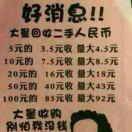 好消息!!
大量回收二手人民币
5元的 3.5元收 量大4.5元
10元的 7元收 量大8.5元
20元的 16元收 量大18元
50元的 40元收 量大43元
100元的 85元收 量大92元
大量收购
别怕我没钱